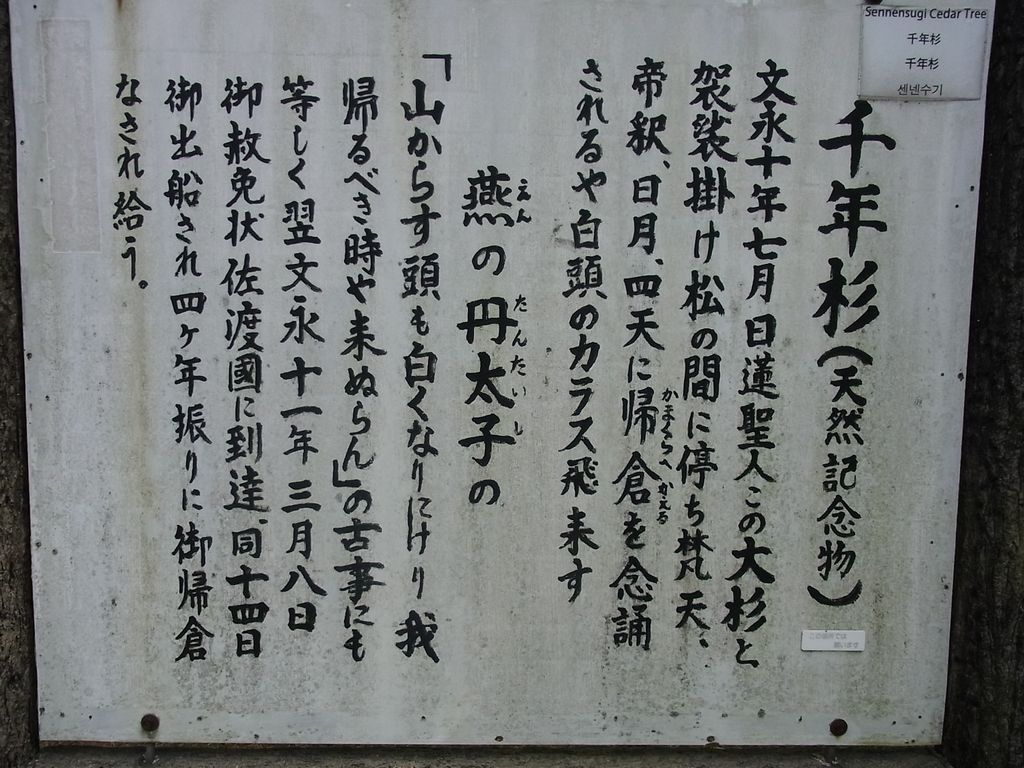 Sennensugi Cedar Tree
千年杉
千年杉
센넨수기
千年杉(天然記念物)
文永十年七月日蓮聖人この大杉と
袈裟掛け松の間に停ち梵天、
帝釈、日月、四天に帰倉を念誦
かまくらさかえる
されるや白頭のカラス飛来す
燕の丹太子の
えん たんたいし
「山からす頭も白くなりにけり我
帰るべき時や来ぬらん」の古事にも
等しく翌文永十一年三月八日
御赦免状佐渡國に到達、同十四日
御出船され四ヶ年振りに御帰倉
なされ給う。